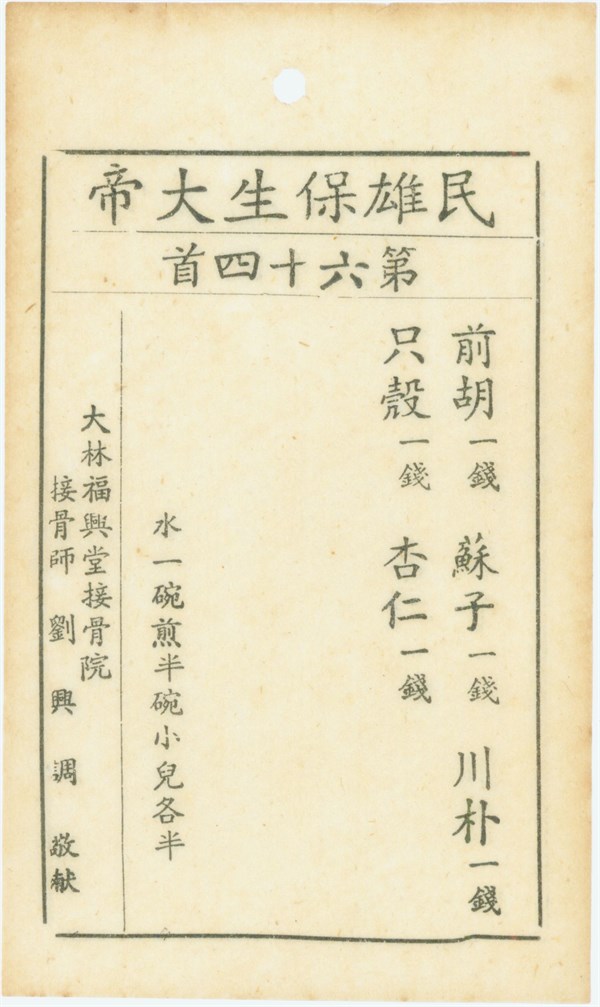 民雄保生大帝
第六十四首
前胡一錢 蘇子一錢 川朴一錢
只殼一錢 杏仁一錢
水一碗煎半碗小兒各半
大林福興堂接骨院
接骨師 劉興調 敬献